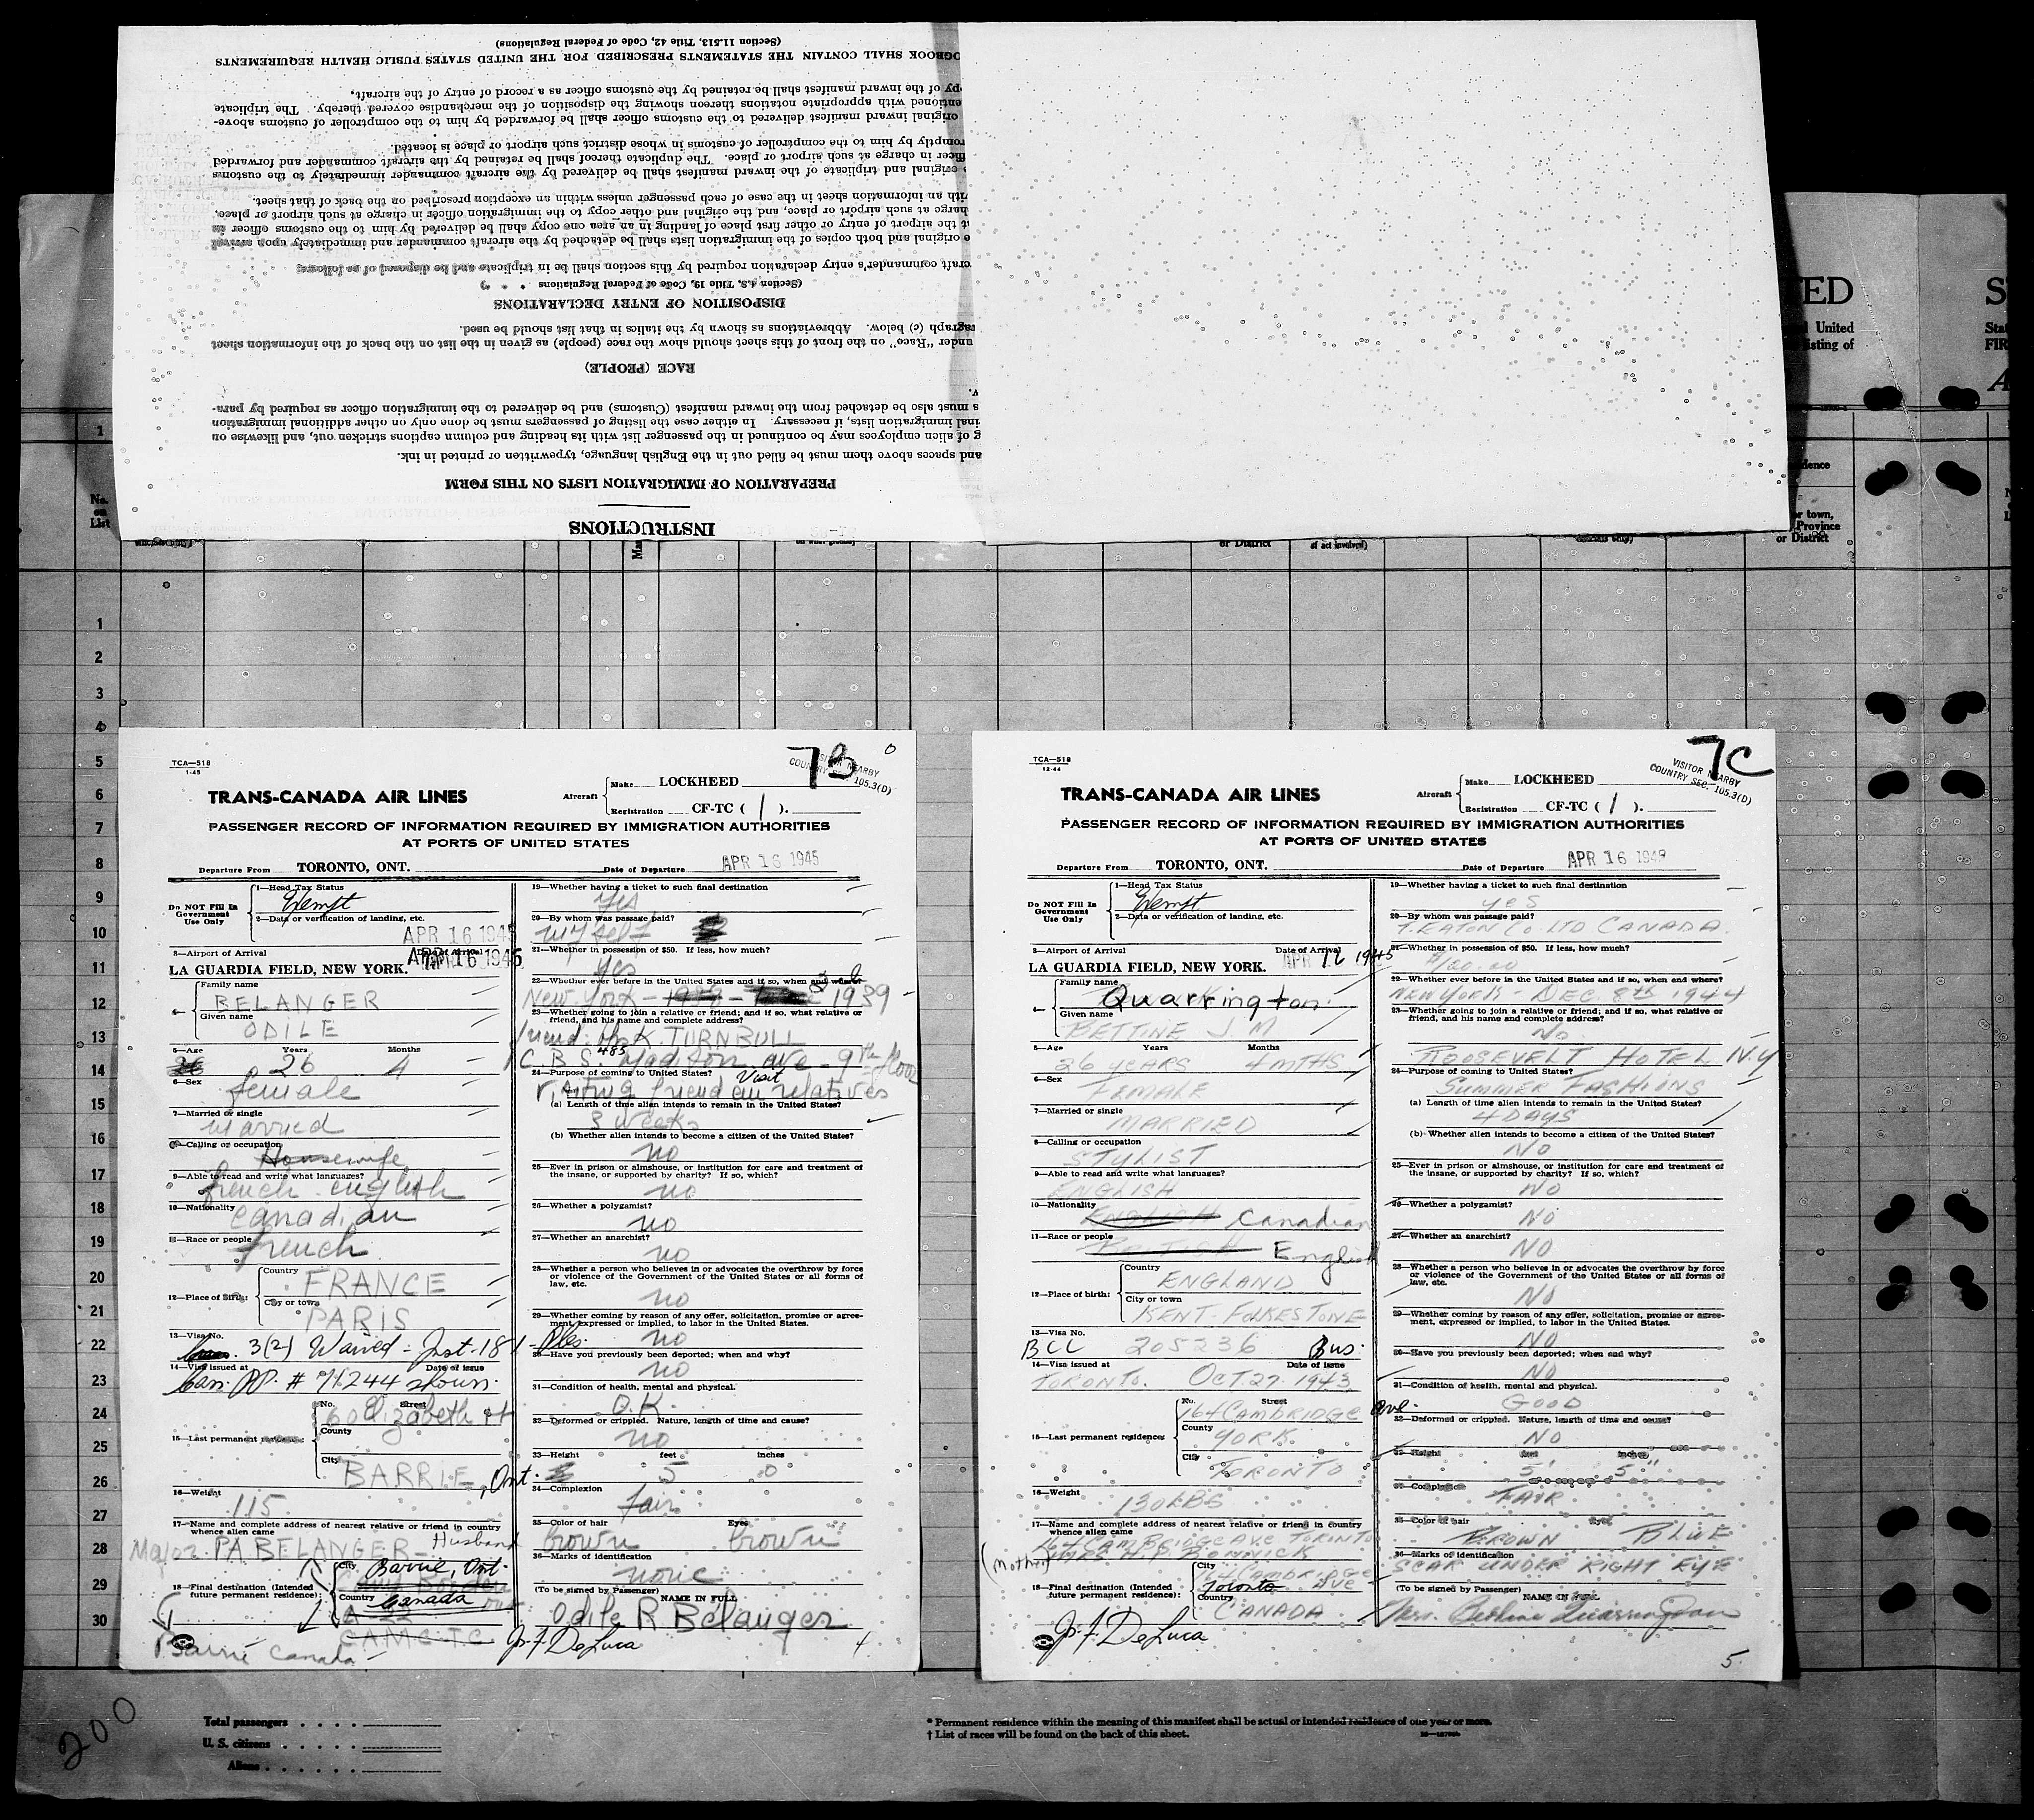 INSTRUCTIONS
PREPARATION OF IMMIGRATION LISTS ON THIS FORM
and spaces above them must be filled out in the English language, typewritten or printed in ink.
g of alien employees may be continued in the passenger list with its heading and column captions stricken out, and likewise on
inal immigration lists, if necessary. In either case the listing of passengers must be done only on other additional immigration
s must also be detached from the inward manifest (Customs) and be delivered to the immigration officer as required by para-
v.
RACE (PEOPLE)
under "Race" on the front of this sheet should show the race (people) as given in the list on the back of the information sheet
ragraph (c) below. Abbreviations as shown by the italics in that list should be used.
DISPOSITION OF ENTRY DECLARATIONS
(Section 4.8, Title 19, Code of Federal Regulations
craft commander's entry declaration required by this section shall be in triplicate and be disposed of as follows:
e original and both copies of the immigration lists shall be detached by the aircraft commander and immediately upon arrival
t the airport of entry or other first place of landing in an area one copy shall be delivered by him to the customs officer in
harge at such airport or place, and the original and other copy to the immigration officer in charge at such airport or place,
ith an information sheet in the case of each passenger unless within an exception prescribed on the back of that sheet.
original and triplicate of the inward manifest shall be delivered by the aircraft commander immediately to the customs
fficer in charge at such airport or place. The duplicate thereof shall be retained by the aircraft commander and forwarded
romptly by him to the comptroller of customs in whose district such airport or place is located.
original inward manifest delivered to the customs officer shall be forwarded by him to the comptroller of customs above-
entioned with appropriate notations thereon showing the disposition of the merchandise covered thereby. The triplicate
py of the inward manifest shall be retained by the customs officer as a record of entry of the aircraft.
OGBOOK SHALL CONTAIN THE STATEMENTS PRESCRIBED FOR THE UNITED STATES PUBLIC HEALTH REQUIREMENTS
(Section 11.513, Title 42, Code of Federal Regulations)
ED
United
isting of
S
Stat
FIR
A
1
No.
on
List
dence
r town,
Province
or District
or District
of act involved)
1
2
3
4
5
6
7
8
9
10
11
12
13
14
15
16
17
18
19
20
21
22
23
24
25
26
27
28
29
30
TCA—518
1-45
7B
VISITOR NEARBY
COUNTRY 105.3(D)
Aircraft
Make LOCKHEED
Registration CF-TC ( 1 ).
TRANS-CANADA AIR LINES
PASSENGER RECORD OF INFORMATION REQUIRED BY IMMIGRATION AUTHORITIES
AT PORTS OF UNITED STATES
Departure From TORONTO, ONT. Date of Departure APR 16 1945
Do NOT Fill In
Government
Use Only
1—Head Tax Status
Exempt
2—Data or verification of landing, etc.
APR 16 1945
3—Airport of Arrival Date of Arrival
LA GUARDIA FIELD, NEW YORK. APR 16 1945
4— Family name
BELANGER
Given name
ODILE
5—Age Years Months
26 4
6—Sex
female
7—Married or single
married
8—Calling or occupation
Housewife
9—Able to read and write what languages?
french english
10—Nationality
Canadian
11—Race or people
french
12—Place of Birth:
Country
FRANCE
City or town
PARIS
13—Visa No.
3(2) Waived - Inst. 181 - Ples.
14—Visa issued at Date of issue
Can. PP. # 91244 shown.
15—Last permanent residence:
No. Street
60 Elizabeth st
County
City
BARRIE, Ont.
16—Weight
115
17—Name and complete address of nearest relative or friend in country
whence alien came
Major PA BELANGER - Husband
18—Final destination (Intended
future permanent residence):
City Barrie, Ont.
Camp Borden
Country Canada
A 22
C.A.M.C.T.C.
Barrie Canada
19—Whether having a ticket to such final destination
Yes
20—By whom was passage paid?
myself
21—Whether in possession of $50. If less, how much?
Yes
22—Whether ever before in the United States and if so, when and where?
New York - 1939
23—Whether going to join a relative or friend; and if so, what relative or
friend, and his name and complete address?
friend: K. TURNBULL
C.B.S. 485 Madison ave - 9th floor
24—Purpose of coming to United States? Visit
Visiting friend an relatives
(a) Length of time alien intends to remain in the United States?
3 weeks
(b) Whether alien intends to become a citizen of the United States?
no
25—Ever in prison or almshouse, or institution for care and treatment of
the insane, or supported by charity? If so, which?
no
26—Whether a polygamist?
no
27—Whether an anarchist?
no
28—Whether a person who believes in or advocates the overthrow by force
or violence of the Government of the United States or all forms of
law, etc.
no
29—Whether coming by reason of any offer, solicitation, promise or agree-
ment, expressed or implied, to labor in the United States.
no
30—Have you previously been deported; when and why?
no
31—Condition of health, mental and physical.
O.K.
32—Deformed or crippled. Nature, length of time and cause?
no
33—Height feet inches
5 0
34—Complexion
fair
35—Color of hair Eyes
brown brown
36—Marks of identification
none
(To be signed by Passenger) NAME IN FULL
Odile R Belanger
J. F. DeLuca
4
TCA—518
12-44
7C
VISITOR NEARBY
COUNTRY SEC. 105.3(D)
Aircraft
Make LOCKHEED
Registration CF-TC ( 1 ).
TRANS-CANADA AIR LINES
PASSENGER RECORD OF INFORMATION REQUIRED BY IMMIGRATION AUTHORITIES
AT PORTS OF UNITED STATES
Departure From TORONTO, ONT. Date of Departure APR 16 1945
Do NOT Fill In
Government
Use Only
1—Head Tax Status
Exempt
2—Data or verification of landing, etc.
3—Airport of Arrival Date of Arrival
LA GUARDIA FIELD, NEW YORK. APR 16 1945
4— Family name
Quarrington
Given name
BETTINE J M
5—Age Years Months
26 YEARS 4 MTHS
6—Sex
FEMALE
7—Married or single
MARRIED
8—Calling or occupation
STYLIST
9—Able to read and write what languages?
ENGLISH
10—Nationality
ENGLISH Canadian
11—Race or people
BRITISH English
12—Place of birth:
Country
ENGLAND
City or town
KENT. FOLKESTONE
13—Visa No.
BCC 205236 Bus.
14—Visa issued at Date of issue
TORONTO. OCT. 27. 1943
15—Last permanent residence:
No. Street
164 CAMBRIDGE Ave.
County
YORK.
City
TORONTO
16—Weight
130 LBS
17—Name and complete address of nearest relative or friend in country
whence alien came
164 CAMBRIDGE AVE TORONTO
(Mother) MRS H.P.
18—Final destination (Intended
future permanent residence):
City
164 CAMBRIDGE
Toronto AVE
Country
CANADA
19—Whether having a ticket to such final destination
YES
20—By whom was passage paid?
T. EATON CO. LTD CANADA.
21—Whether in possession of $50. If less, how much?
$120.00
22—Whether ever before in the United States and if so, when and where?
NEW YORK - DEC. 8th 1944
23—Whether going to join a relative or friend; and if so, what relative or
friend, and his name and complete address?
NO
ROOSEVELT HOTEL N.Y
24—Purpose of coming to United States?
SUMMER FASHIONS
(a) Length of time alien intends to remain in the United States?
4 DAYS
(b) Whether alien intends to become a citizen of the United States?
NO
25—Ever in prison or almshouse, or institution for care and treatment of
the insane, or supported by charity? If so, which?
NO
26—Whether a polygamist?
NO
27—Whether an anarchist?
NO
28—Whether a person who believes in or advocates the overthrow by force
or violence of the Government of the United States or all forms of
law, etc.
NO
29—Whether coming by reason of any offer, solicitation, promise or agree-
ment, expressed or implied, to labor in the United States.
NO
30—Have you previously been deported; when and why?
NO
31—Condition of health, mental and physical.
GOOD
32—Deformed or crippled. Nature, length of time and cause?
NO
33—Height feet inches
5' 5"
34—Complexion
FAIR
35—Color of hair Eyes
BROWN BLUE
36—Marks of identification
SCAR UNDER RIGHT EYE
(To be signed by Passenger) NAME IN FULL
Mrs. Bettine Quarrington
J. F. DeLuca
5
200
Total passengers . . . .
U. S. citizens . . . . .
Aliens . . . . . .
* Permanent residence within the meaning of this manifest shall be actual or intended residence of one year or more.
† List of races will be found on the back of this sheet.